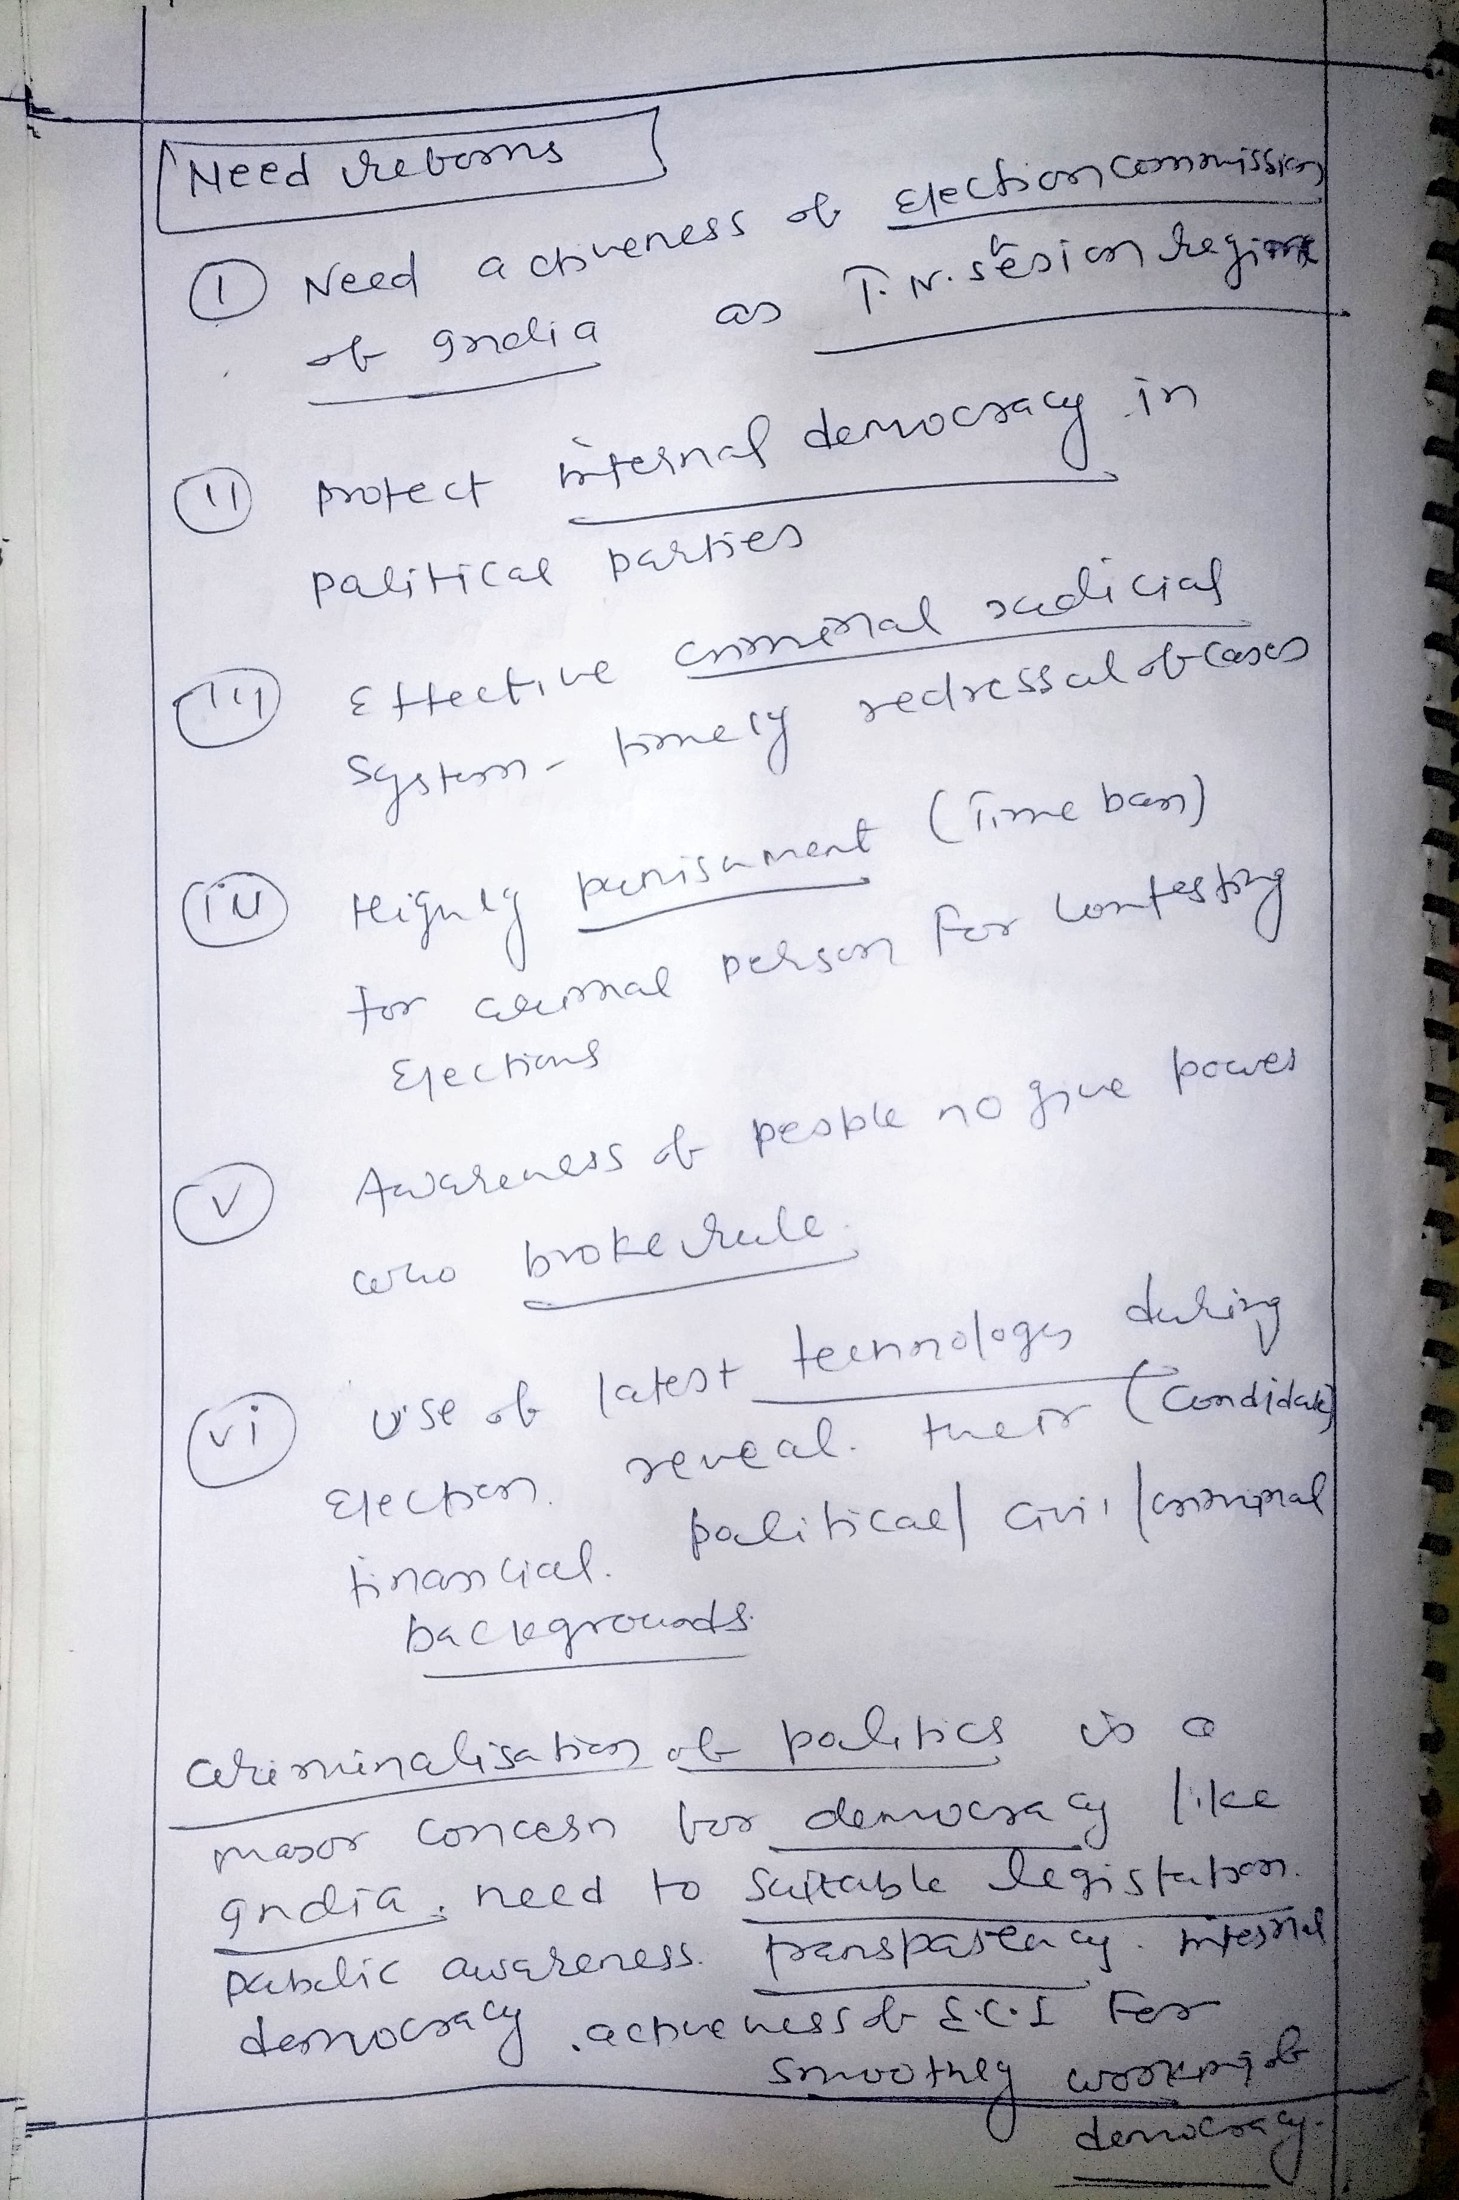 Need reforms
(i) Need activeness of Election commission
of India as T.N. Sesion regime
(ii) Protect internal democracy in
political parties
(iii) Effective criminal judicial
system - timely redressal of cases
(iv) Highly punishment (Time ban)
for criminal person for contesting
Elections
(v) Awareness of people no give power
who broke rule.
(vi) Use of latest technology during
Election. reveal. their (Candidate)
financial. political/ civil/criminal
backgrounds.
Criminalisation of politics is a
major concern for democracy like
India. need to suitable legistation.
public awareness. transparency. internal
democracy. activeness of E.C.I for
smoothly working of
democracy.